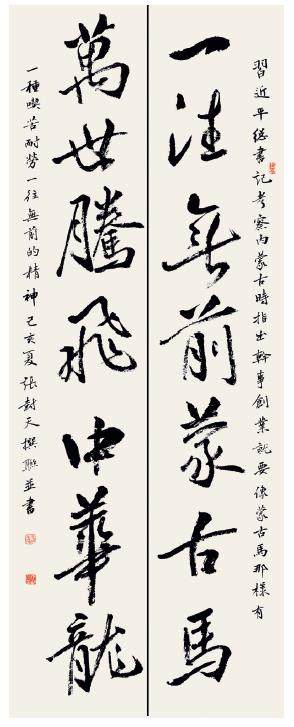 習近平總書記考察内蒙古時指出幹事創業就要像蒙古馬那樣有
一往無前蒙古馬
萬世騰飛中華龍
一種喫苦耐勞一往無前的精神己亥夏張封天撰聯並書